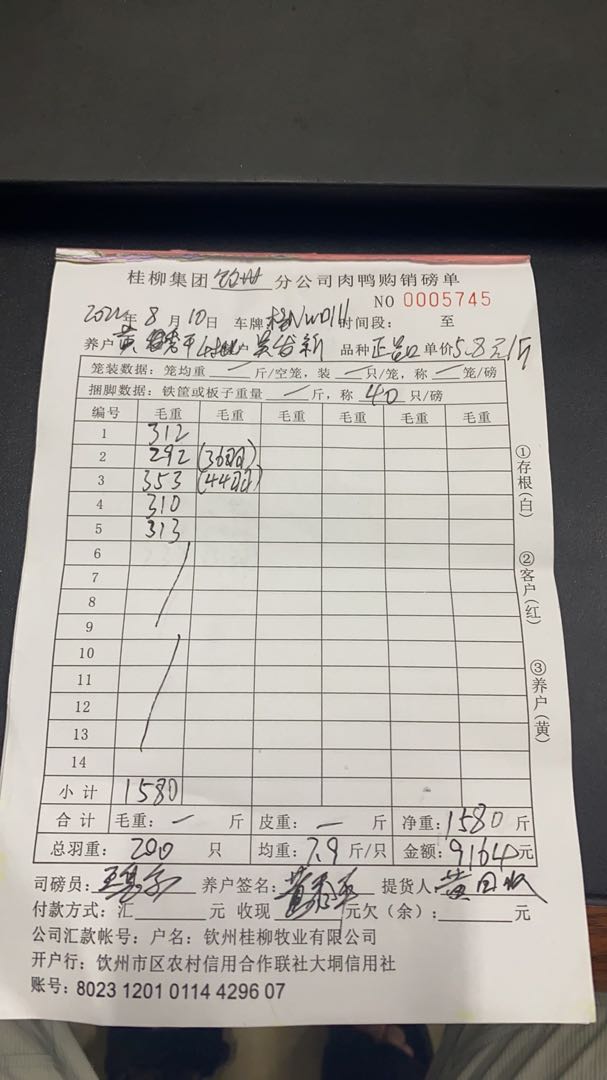 桂柳集团 钦州 分公司肉鸭购销磅单
NO 0005745
年 8 月 10 日 车牌 桂NW0111 时间段： 至
养户 黄 户 吴 新 品种 正 单价 5.8元/斤
笼装数据：笼均重 — 斤/空笼，装 — 只/笼，称 — 笼/磅
捆脚数据：铁筐或板子重量 — 斤，称 40 只/磅
编号 毛重 毛重 毛重 毛重 毛重 毛重
1 312
2 292 (36只)
3 353 (44只)
4 310
5 313
6
7
8
9
10
11
12
13
14
小计 1580
合计 毛重： — 斤 皮重： — 斤 净重：1580 斤
总羽重： 200 只 均重：7.9 斤/只 金额：9164元
司磅员： 养户签名：黄 提货人：黄
付款方式：汇 元 收现 元欠（余）： 元
公司汇款帐号：户名：钦州桂柳牧业有限公司
开户行：钦州市区农村信用合作联社大垌信用社
账号：8023 1201 0114 4296 07
①存根(白)
②客户(红)
③养户(黄)